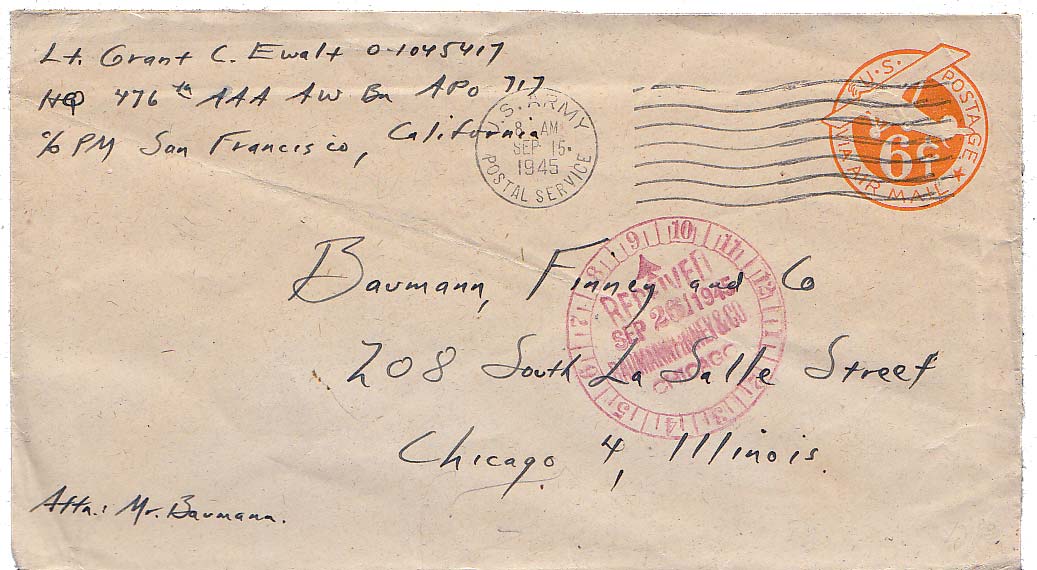 Lt. Grant C. Ewalt O-1045417
HQ 476th AAA AW Bn APO 717
c/o PM San Francisco, California
U.S. ARMY
8 AM
SEP 15
1945
POSTAL SERVICE
U.S. POSTAGE
6¢
VIA AIR MAIL
Baumann, Finney and Co
208 South La Salle Street
Chicago 4, Illinois.
Attn: Mr. Baumann.
9 10 11 12 1 2 3 4 5 6 7 8
RECEIVED
SEP 26 1945
BAUMANN, FINNEY & CO
CHICAGO